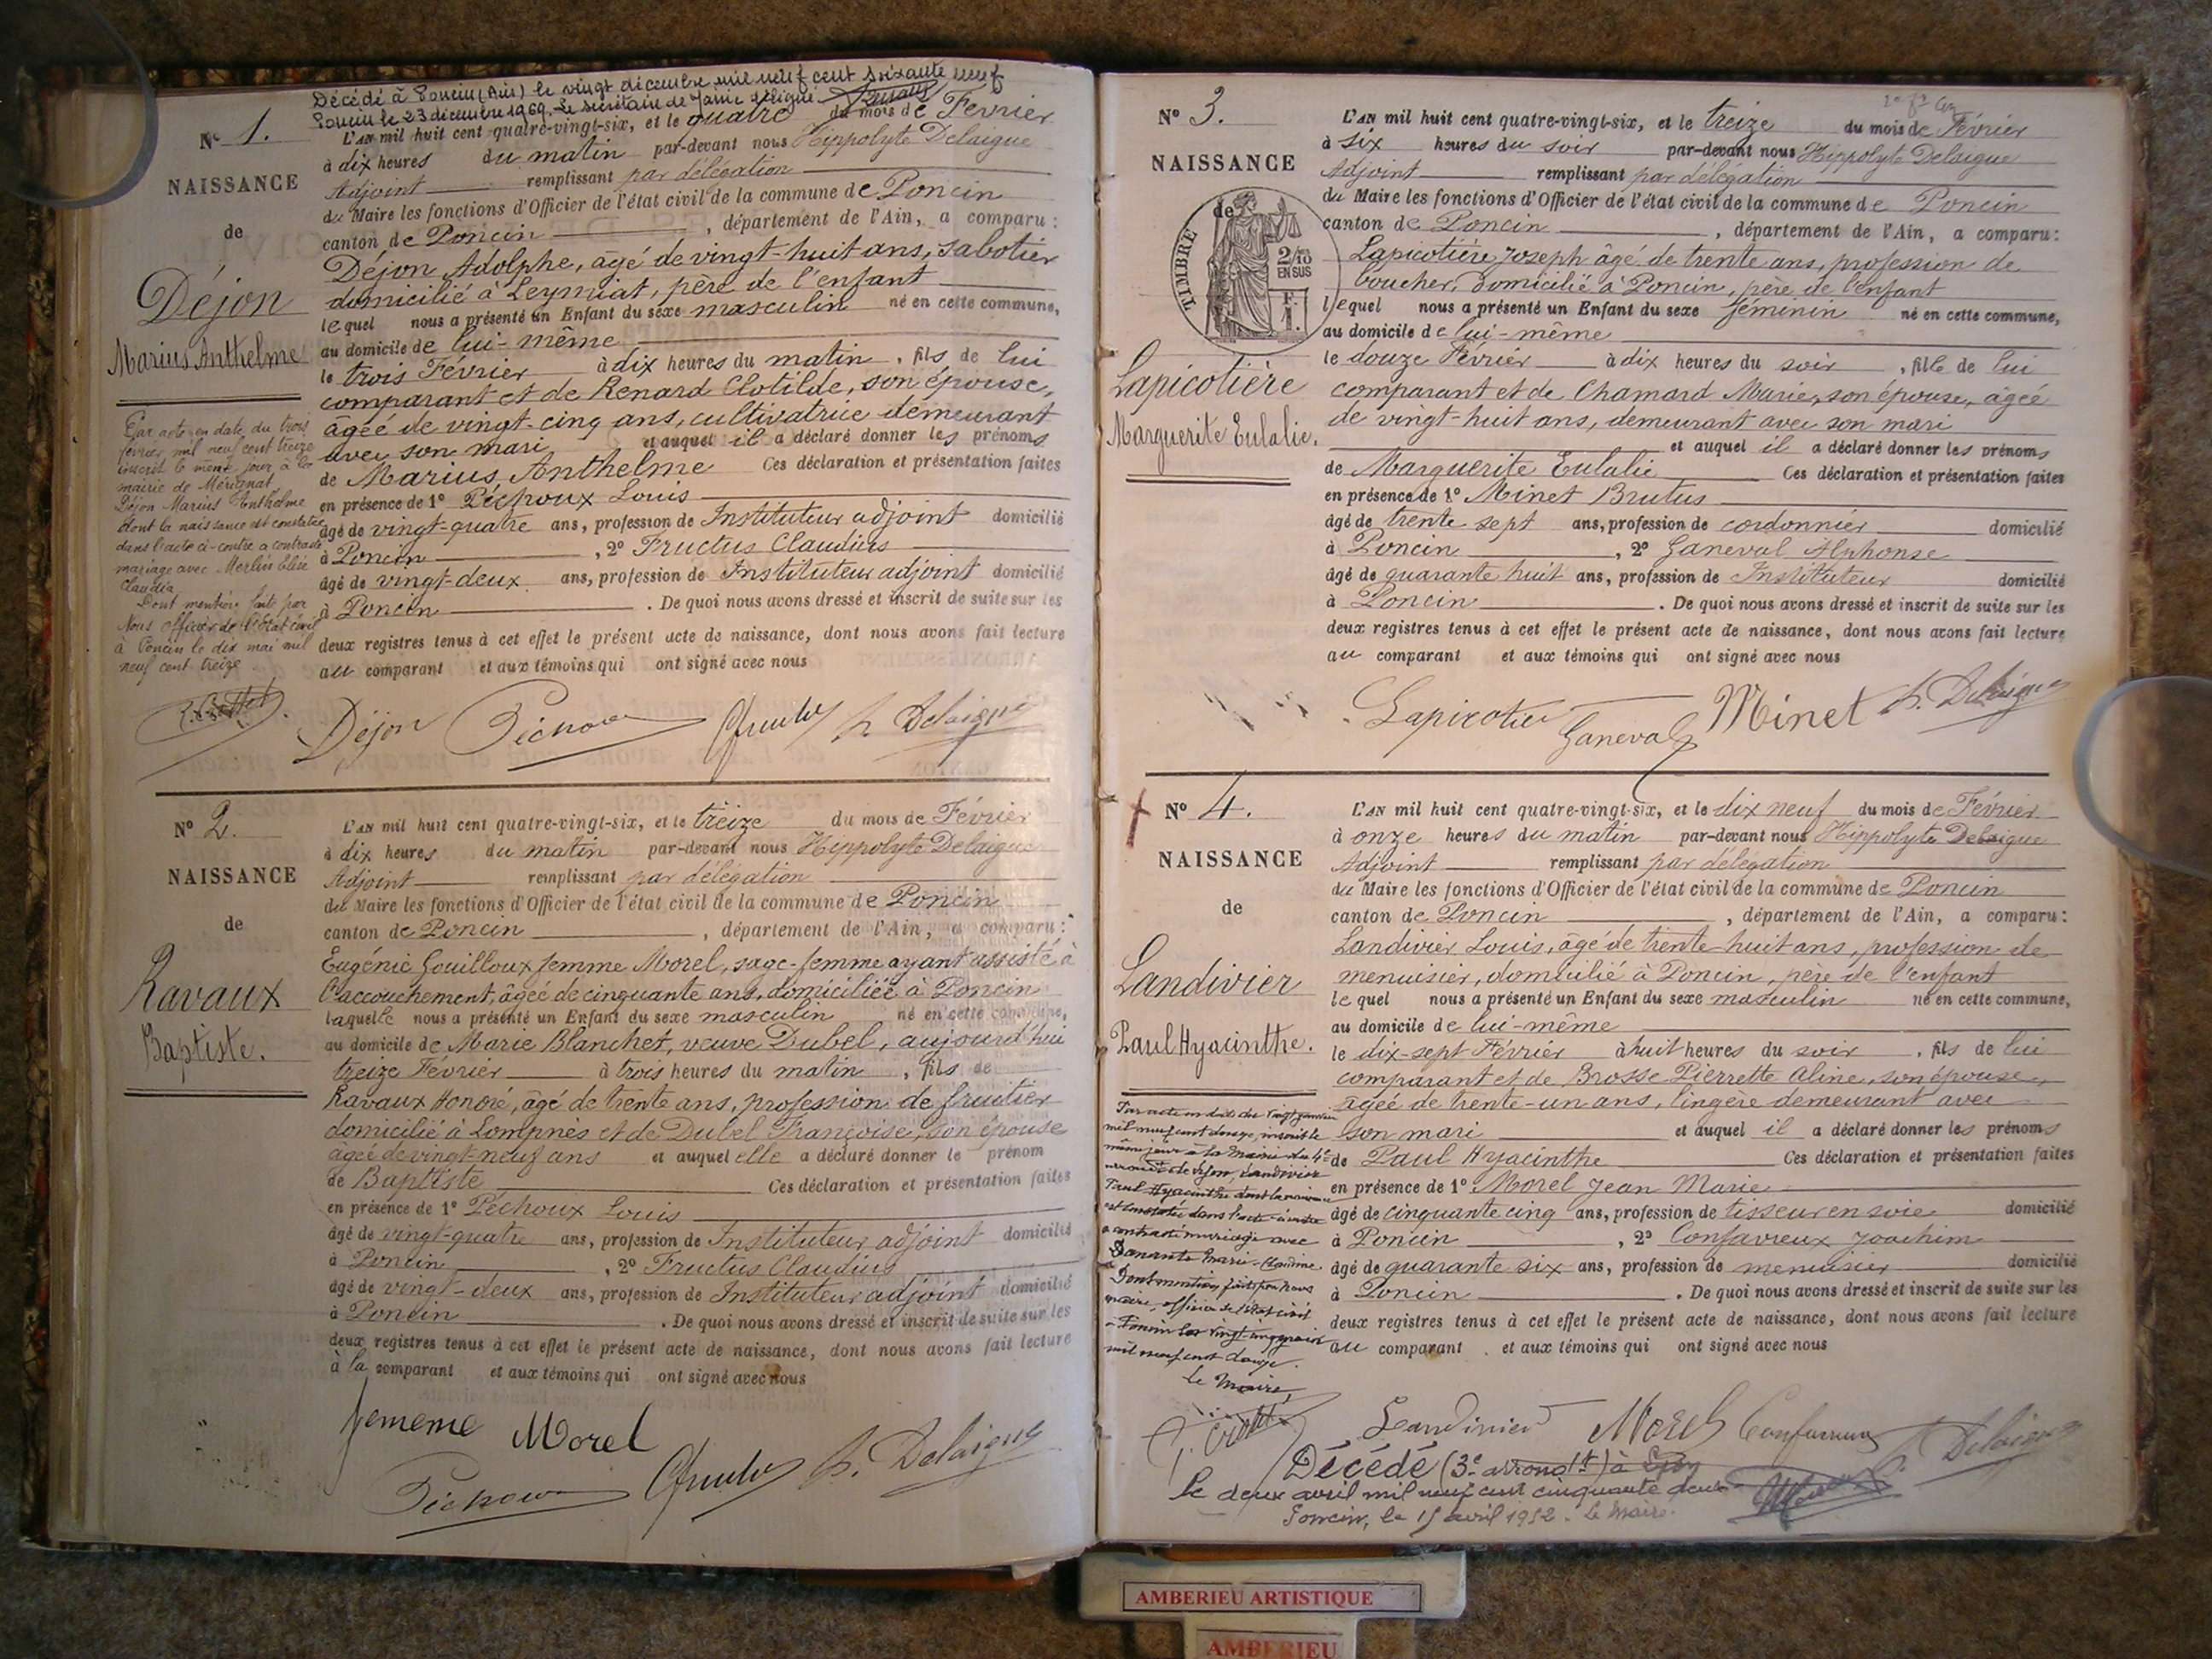 Décédé à Poncin (Ain) le vingt décembre mil neuf cent soixante neuf
Poncin le 23 décembre 1969. Le secrétaire de Mairie délégué
N° 1.
NAISSANCE
de
Déjon
Marius Anthelme
L'AN mil huit cent quatre-vingt-six, et le quatre du mois de Février
à dix heures du matin par-devant nous Hippolyte Delaigue
Adjoint remplissant par délégation
du Maire les fonctions d'Officier de l'état civil de la commune de Poncin
canton de Poncin, département de l'Ain, a comparu :
Déjon Adolphe, âgé de vingt-huit ans, sabotier
domicilié à Leymiat, père de l'enfant
lequel nous a présenté un Enfant du sexe masculin né en cette commune,
au domicile de lui-même
le trois Février à dix heures du matin, fils de lui
comparant et de Renard Clotilde, son épouse,
âgée de vingt-cinq ans, cultivatrice demeurant
avec son mari et auquel il a déclaré donner les prénoms
de Marius Anthelme Ces déclaration et présentation faites
en présence de 1° Péchoux Louis
âgé de vingt-quatre ans, profession de Instituteur adjoint domicilié
à Poncin, 2° Fructus Claudius
âgé de vingt-deux ans, profession de Instituteur adjoint domicilié
à Poncin. De quoi nous avons dressé et inscrit de suite sur les
deux registres tenus à cet effet le présent acte de naissance, dont nous avons fait lecture
au comparant et aux témoins qui ont signé avec nous
Par acte en date du trois
février mil neuf cent treize
inscrit le même jour à la
mairie de Mérignat
Déjon Marius Anthelme
dont la naissance est constatée
dans l'acte ci-contre a contracté
mariage avec Merlin
Claudia
Dont mention faite par
Nous officier de l'Etat civil
à Poncin le dix mai mil
neuf cent treize
Déjon Péchoux H. Delaigue
N° 2.
NAISSANCE
de
Ravaux
Baptiste.
L'AN mil huit cent quatre-vingt-six, et le treize du mois de Février
à dix heures du matin par-devant nous Hippolyte Delaigue
Adjoint remplissant par délégation
du Maire les fonctions d'Officier de l'état civil de la commune de Poncin
canton de Poncin, département de l'Ain, a comparu :
Eugénie Gouilloux femme Morel, sage-femme ayant assisté à
l'accouchement, âgée de cinquante ans, domiciliée à Poncin
laquelle nous a présenté un Enfant du sexe masculin né en cette commune,
au domicile de Marie Blanchet, veuve Dubel, aujourd'hui
treize Février à trois heures du matin, fils de
Ravaux Honoré, âgé de trente ans, profession de fruitier
domicilié à Lompnès et de Dubel Françoise, son épouse
âgée de vingt-neuf ans et auquel elle a déclaré donner le prénom
de Baptiste Ces déclaration et présentation faites
en présence de 1° Péchoux Louis
âgé de vingt-quatre ans, profession de Instituteur adjoint domicilié
à Poncin, 2° Fructus Claudius
âgé de vingt-deux ans, profession de Instituteur adjoint domicilié
à Poncin. De quoi nous avons dressé et inscrit de suite sur les
deux registres tenus à cet effet le présent acte de naissance, dont nous avons fait lecture
à la comparant et aux témoins qui ont signé avec nous
fememe Morel
Péchoux H. Delaigue
N° 3.
NAISSANCE
de
TIMBRE
2/10
EN SUS
Lapicotière
Marguerite Eulalie.
L'AN mil huit cent quatre-vingt-six, et le treize du mois de Février
à six heures du soir par-devant nous Hippolyte Delaigue
Adjoint remplissant par délégation
du Maire les fonctions d'Officier de l'état civil de la commune de Poncin
canton de Poncin, département de l'Ain, a comparu :
Lapicotière Joseph âgé de trente ans, profession de
boucher, domicilié à Poncin, père de l'enfant
lequel nous a présenté un Enfant du sexe féminin né en cette commune,
au domicile de lui-même
le douze Février à dix heures du soir, fille de lui
comparant et de Chamard Marie, son épouse, âgée
de vingt-huit ans, demeurant avec son mari
et auquel il a déclaré donner les prénoms
de Marguerite Eulalie Ces déclaration et présentation faites
en présence de 1° Minet Brutus
âgé de trente sept ans, profession de cordonnier domicilié
à Poncin, 2° Ganeval Alphonse
âgé de quarante huit ans, profession de Instituteur domicilié
à Poncin. De quoi nous avons dressé et inscrit de suite sur les
deux registres tenus à cet effet le présent acte de naissance, dont nous avons fait lecture
au comparant et aux témoins qui ont signé avec nous
Lapicotière Ganeval Minet H. Delaigue
N° 4.
NAISSANCE
de
Landivier
Paul Hyacinthe.
L'AN mil huit cent quatre-vingt-six, et le dix neuf du mois de Février
à onze heures du matin par-devant nous Hippolyte Delaigue
Adjoint remplissant par délégation
du Maire les fonctions d'Officier de l'état civil de la commune de Poncin
canton de Poncin, département de l'Ain, a comparu :
Landivier Louis, âgé de trente-huit ans, profession de
menuisier, domicilié à Poncin, père de l'enfant
lequel nous a présenté un Enfant du sexe masculin né en cette commune,
au domicile de lui-même
le dix-sept Février à huit heures du soir, fils de lui
comparant et de Brosse Pierrette Aline, son épouse,
âgée de trente-un ans, lingère demeurant avec
son mari et auquel il a déclaré donner les prénoms
de Paul Hyacinthe Ces déclaration et présentation faites
en présence de 1° Morel Jean Marie
âgé de cinquante cinq ans, profession de tisseur en soie domicilié
à Poncin, 2° Confavreux Joachim
âgé de quarante six ans, profession de menuisier domicilié
à Poncin. De quoi nous avons dressé et inscrit de suite sur les
deux registres tenus à cet effet le présent acte de naissance, dont nous avons fait lecture
au comparant et aux témoins qui ont signé avec nous
Par acte en date du vingt janvier
mil neuf cent douze, inscrit le
même jour à la Mairie du 4e
arrondt de Lyon, Landivier
Paul Hyacinthe dont la naissance
est constatée dans l'acte ci-contre
a contracté mariage avec
Marie-Claudine.
Dont mention faite par nous
maire, officier de l'état civil
à Poncin le vingt cinq janvier
mil neuf cent douze.
le Maire,
Landivier Morel Confavreux H. Delaigue
Décédé (3e arrondt) à Lyon
le deux avril mil neuf cent cinquante deux
Poncin, le 15 avril 1952. Le Maire.
AMBERIEU ARTISTIQUE
AMBERIEU